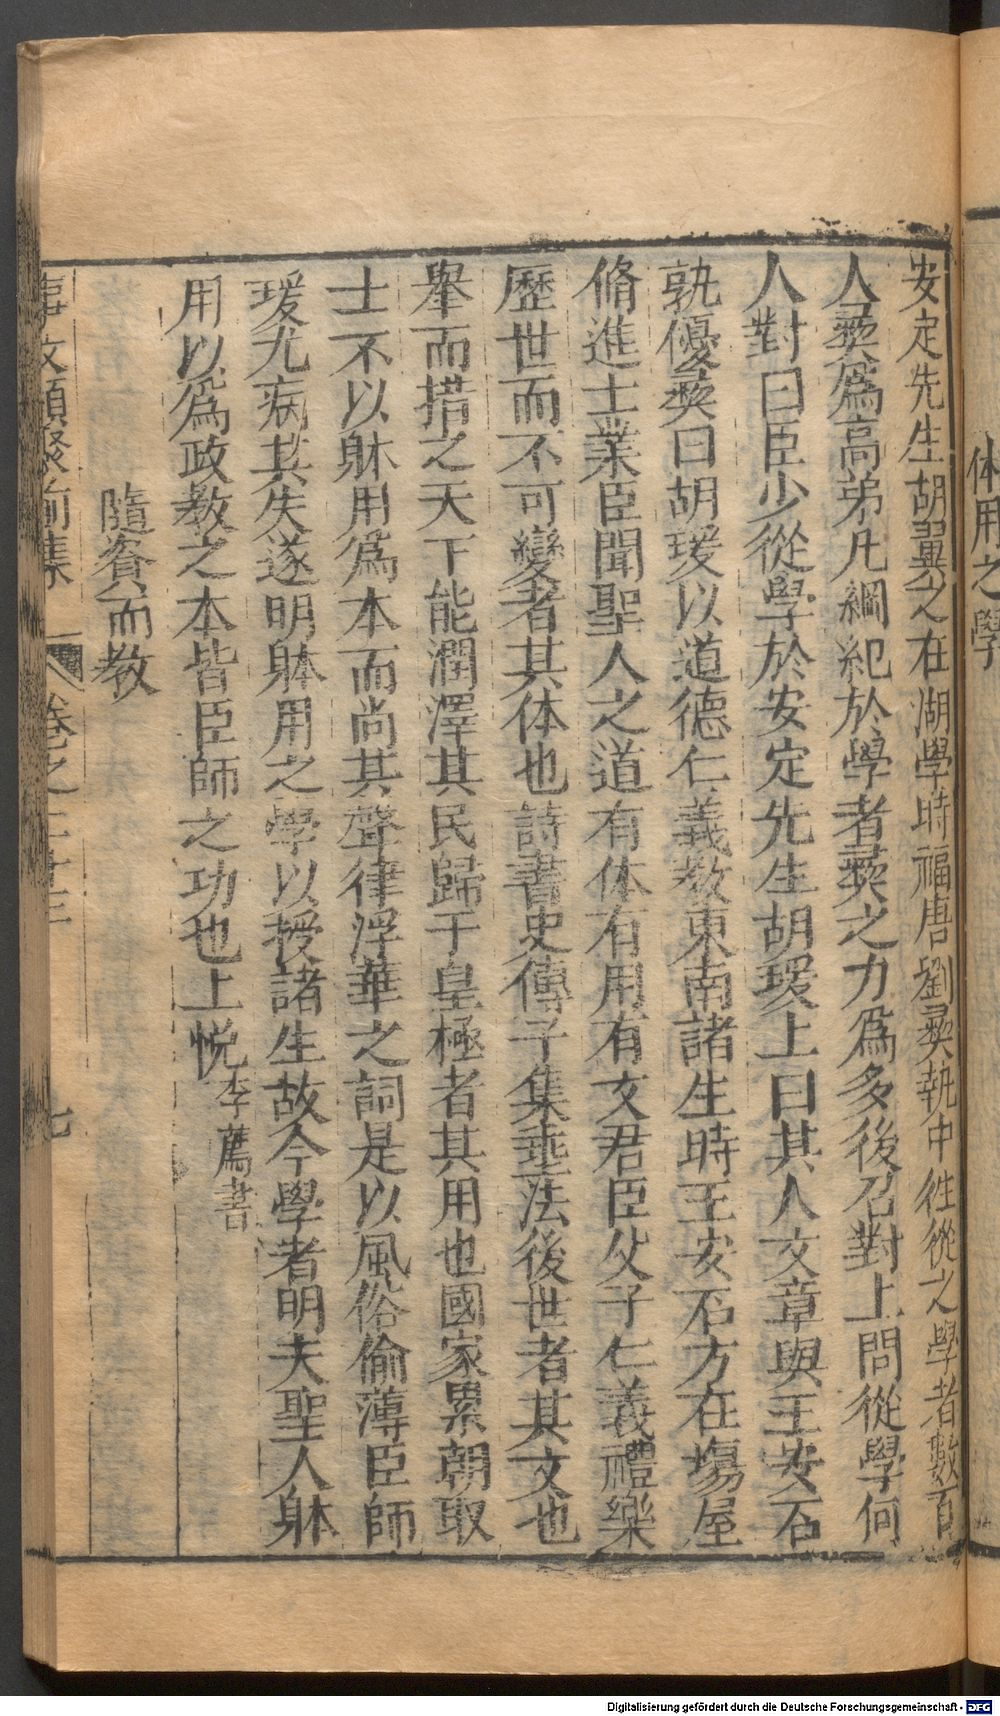 体用之學
安定先生胡翼之在湖學時福唐劉彝執中徃從之學者數百
人彝爲高弟凡綱紀於學者彝之力爲多後召對上問從學何
人對曰臣少從學於安定先生胡瑗上曰其人文章與王安石
孰優彝曰胡瑗以道德仁義教東南諸生時王安石方在塲屋
脩進士業臣聞聖人之道有体有用有文君臣父子仁義禮樂
歷世而不可變者其体也詩書史傳子集垂法後世者其文也
舉而措之天下能潤澤其民歸于皇極者其用也國家累朝取
士不以躰用爲本而尚其聲律浮華之詞是以風俗偷薄臣師
瑗尤病其失遂明躰用之學以授諸生故今學者明夫聖人躰
用以爲政教之本皆臣師之功也上悅李廌書
隨資而教
事文類聚前集 卷之二十三 七
Digitalisierung gefördert durch die Deutsche Forschungsgemeinschaft - DFG